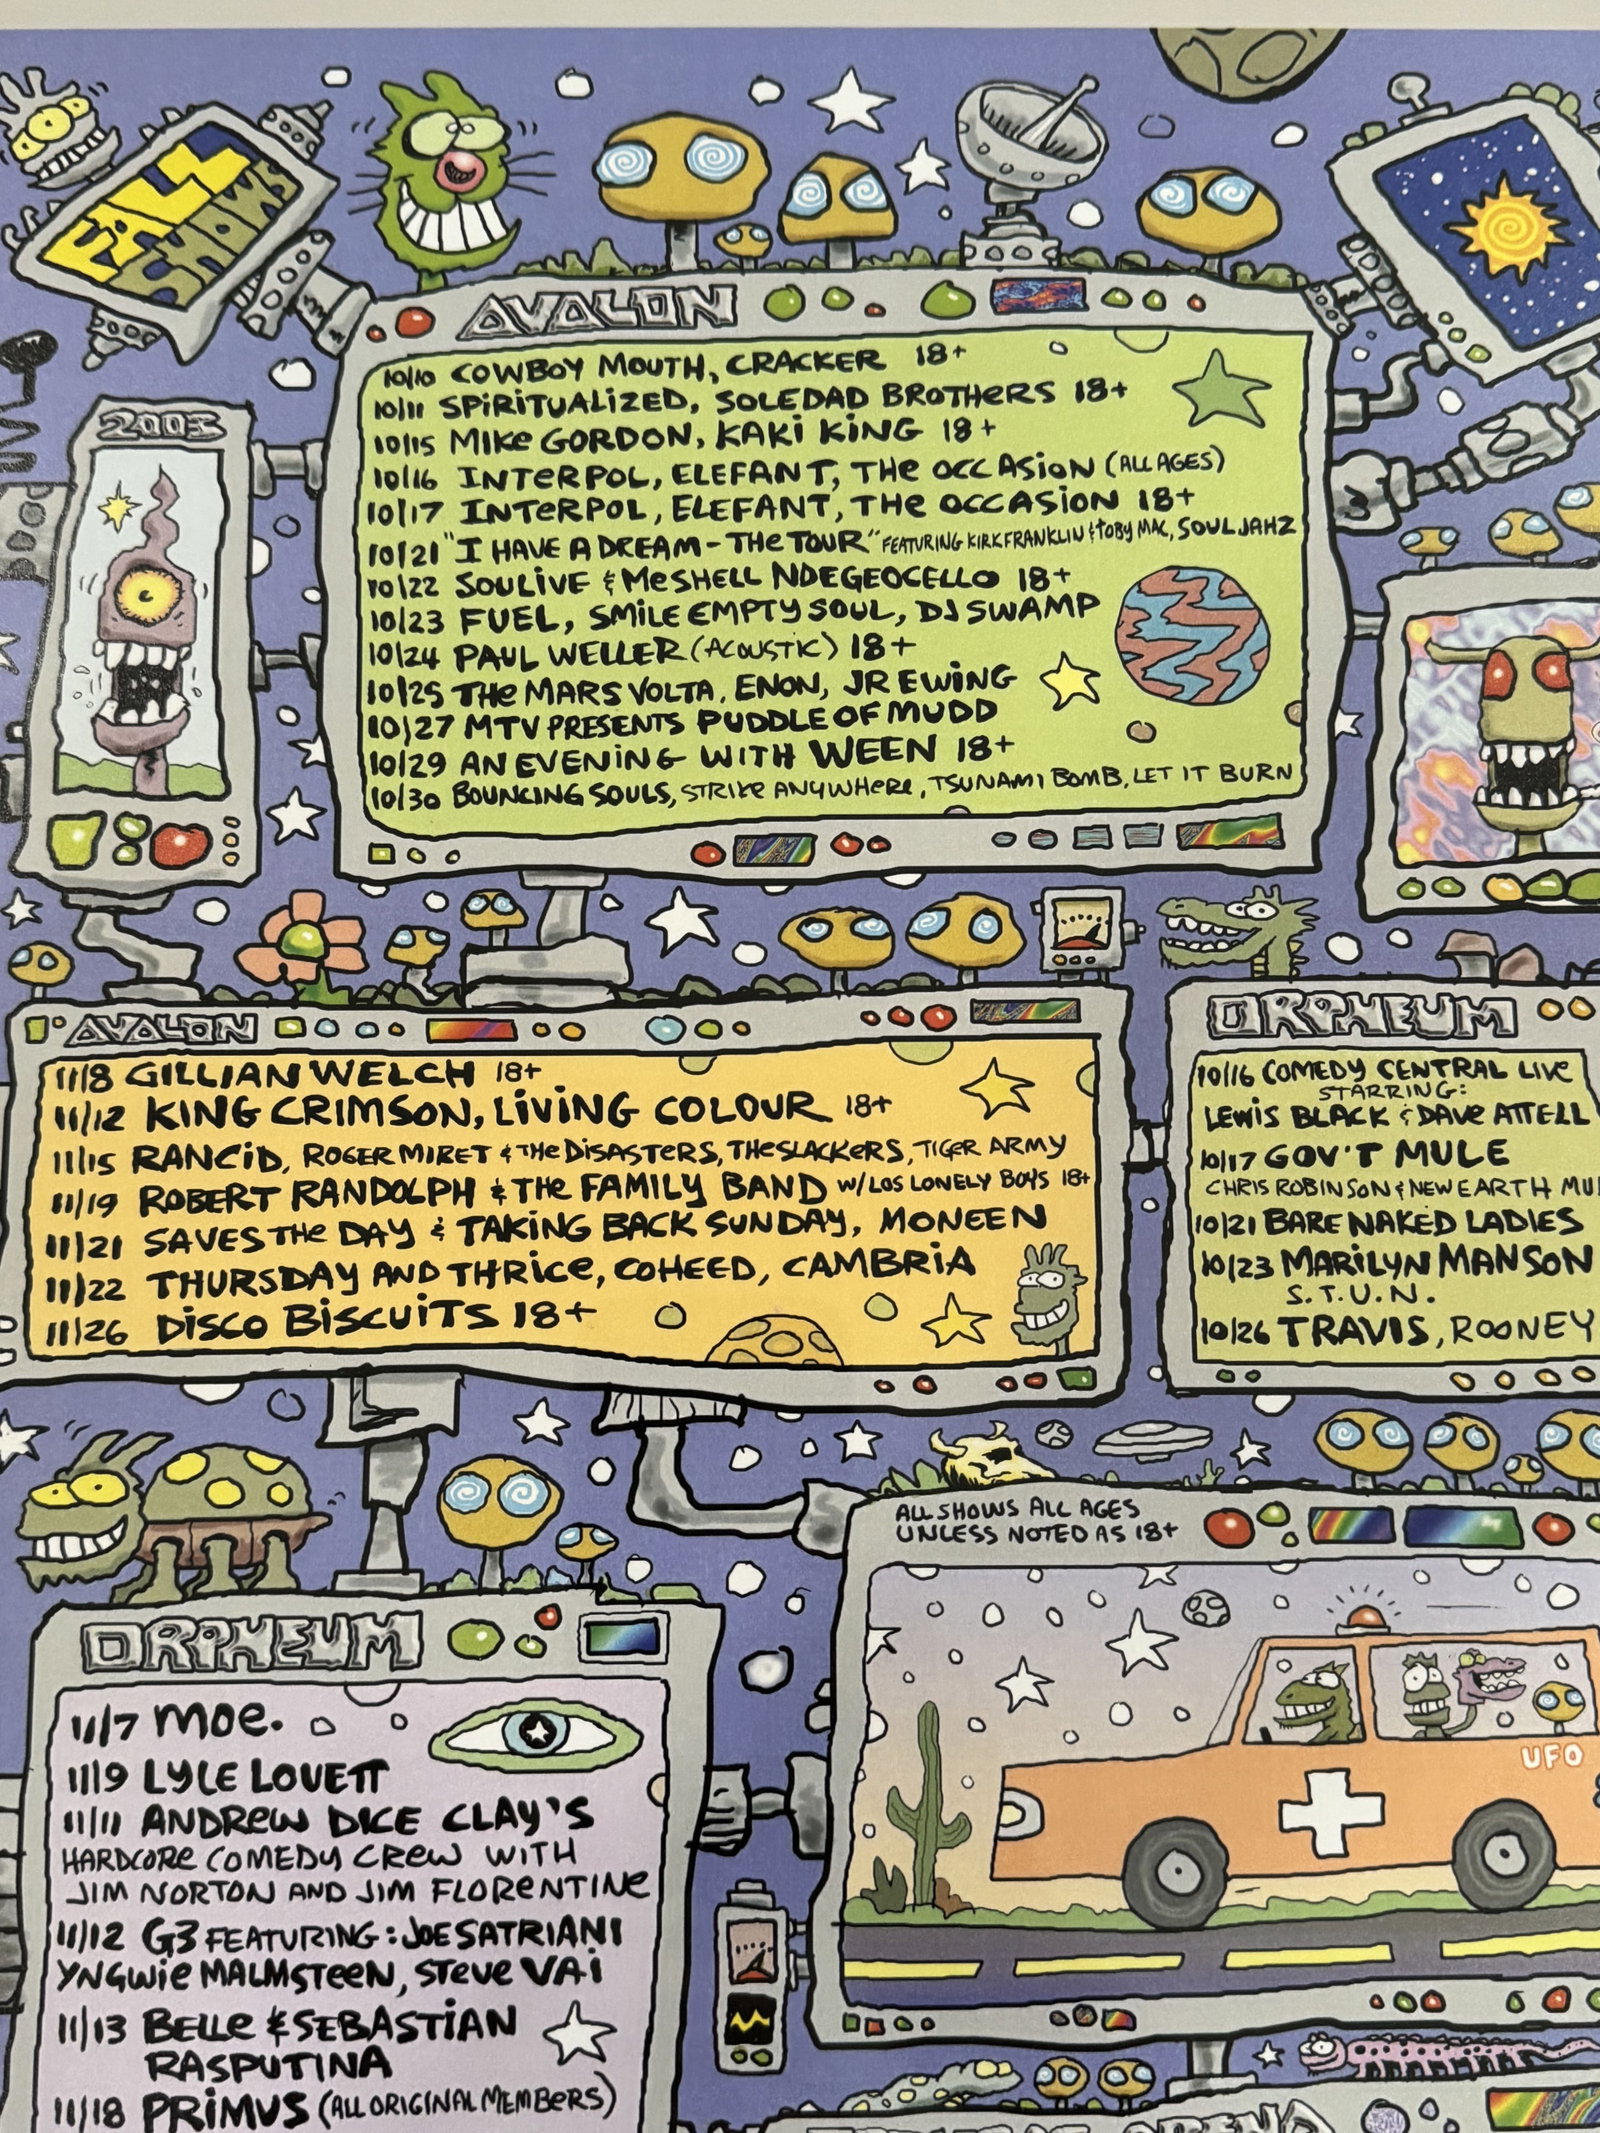 FALL
SHOWS
2003
AVALON
10/10 COWBOY MOUTH, CRACKER 18+
10/11 SPIRITUALIZED, SOLEDAD BROTHERS 18+
10/15 MIKE GORDON, KAKI KING 18+
10/16 INTERPOL, ELEFANT, THE OCCASION (ALL AGES)
10/17 INTERPOL, ELEFANT, THE OCCASION 18+
10/21 "I HAVE A DREAM - THE TOUR" FEATURING KIRK FRANKLIN & TOBY MAC, SOUL JAHZ
10/22 SOULIVE & MESHELL NDEGEOCELLO 18+
10/23 FUEL, SMILE EMPTY SOUL, DJ SWAMP
10/24 PAUL WELLER (ACOUSTIC) 18+
10/25 THE MARS VOLTA, ENON, JR EWING
10/27 MTV PRESENTS PUDDLE OF MUDD
10/29 AN EVENING WITH WEEN 18+
10/30 BOUNCING SOULS, STRIKE ANYWHERE, TSUNAMI BOMB, LET IT BURN
AVALON
11/8 GILLIAN WELCH 18+
11/12 KING CRIMSON, LIVING COLOUR 18+
11/15 RANCID, ROGER MIRET & THE DISASTERS, THE SLACKERS, TIGER ARMY
11/19 ROBERT RANDOLPH & THE FAMILY BAND W/ LOS LONELY BOYS 18+
11/21 SAVES THE DAY & TAKING BACK SUNDAY, MONEEN
11/22 THURSDAY AND THRICE, COHEED, CAMBRIA
11/26 DISCO BISCUITS 18+
ORPHEUM
10/16 COMEDY CENTRAL LIVE
STARRING:
LEWIS BLACK & DAVE ATTELL
10/17 GOV'T MULE
CHRIS ROBINSON & NEW EARTH MU
10/21 BARE NAKED LADIES
10/23 MARILYN MANSON
S.T.U.N.
10/26 TRAVIS, ROONEY
ALL SHOWS ALL AGES
UNLESS NOTED AS 18+
UFO
ORPHEUM
11/7 moe.
11/9 LYLE LOVETT
11/11 ANDREW DICE CLAY'S
HARDCORE COMEDY CREW WITH
JIM NORTON AND JIM FLORENTINE
11/12 G3 FEATURING: JOE SATRIANI
YNGWIE MALMSTEEN, STEVE VAI
11/13 BELLE & SEBASTIAN
RASPUTINA
11/18 PRIMUS (ALL ORIGINAL MEMBERS)